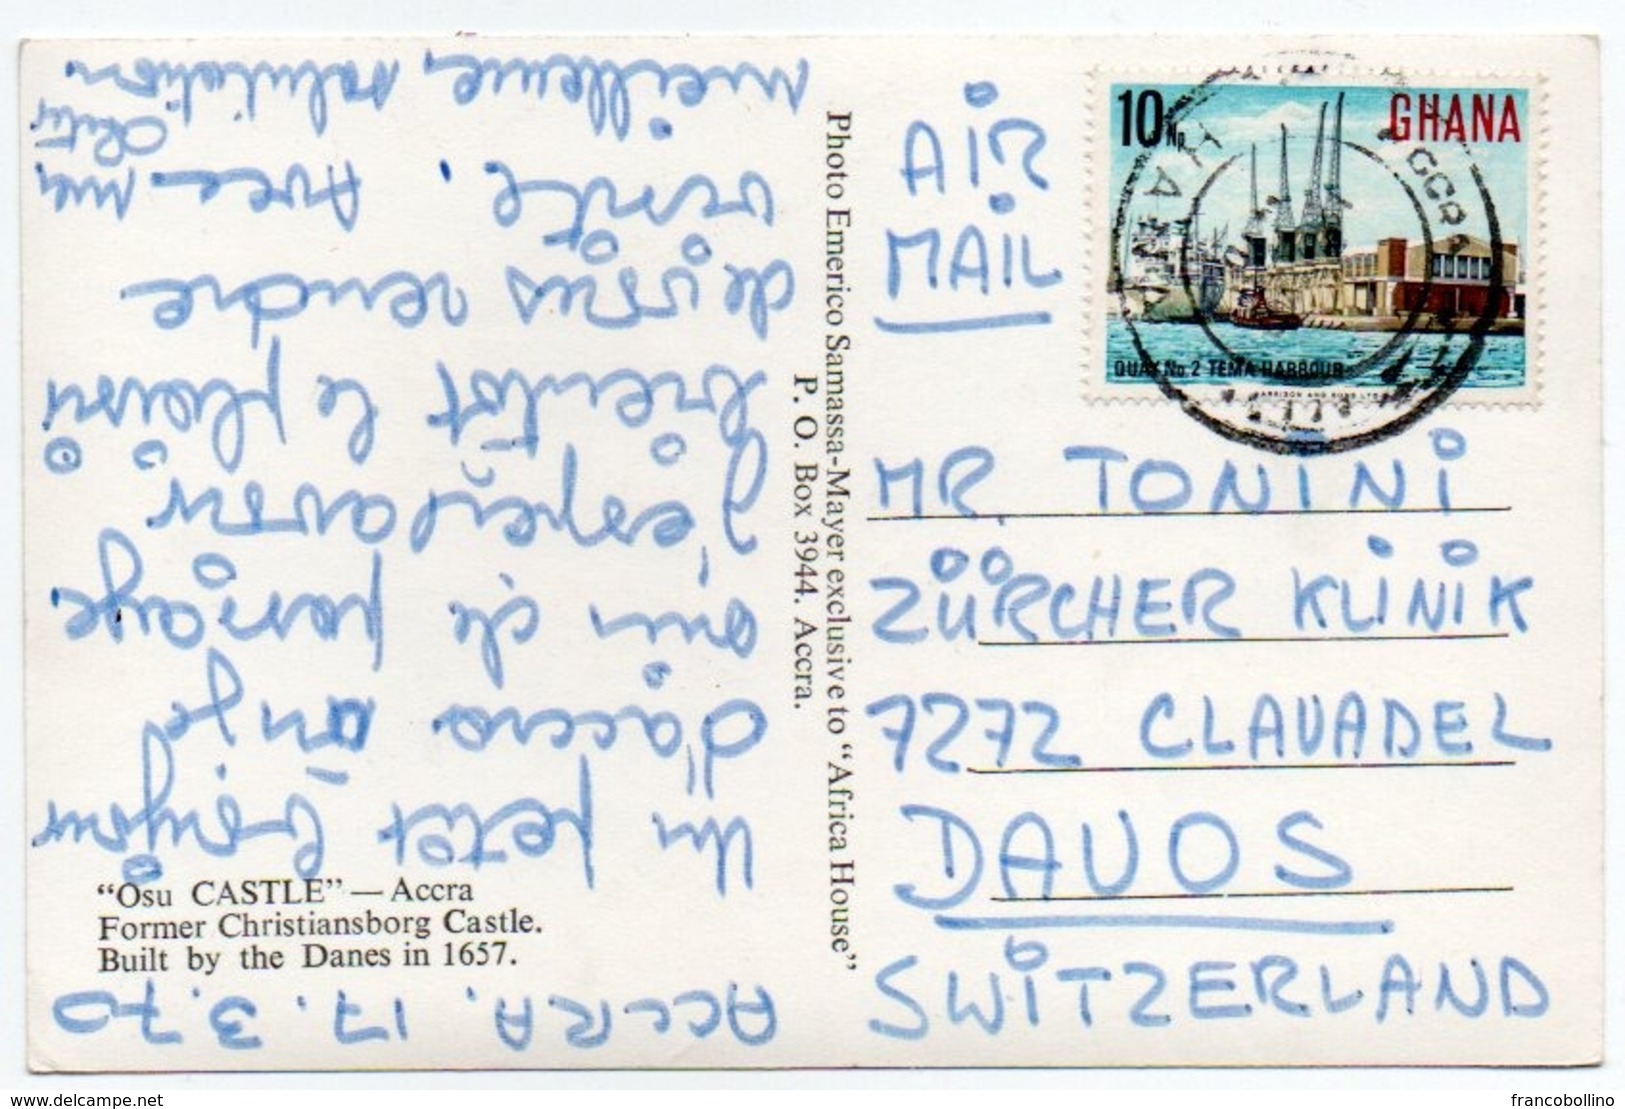 ACCRA, 17.3.70
Un petit bonjour
d'Accra où je
suis de passage
J'espère avoir
bientôt le plaisir
de vous rendre
visite. Avec mes
meilleures salutations
"Osu CASTLE" — Accra
Former Christiansborg Castle.
Built by the Danes in 1657.
Photo Emerico Samassa-Mayer exclusive to "Africa House"
P. O. Box 3944. Accra.
AIR
MAIL
10 Np
GHANA
QUAY No. 2 TEMA HARBOUR
HARRISON AND SONS LTD
ACCRA
GHANA
MR. TONINI
ZÜRCHER KLINIK
7272 CLAVADEL
DAVOS
SWITZERLAND
delcampe.net
francobollino